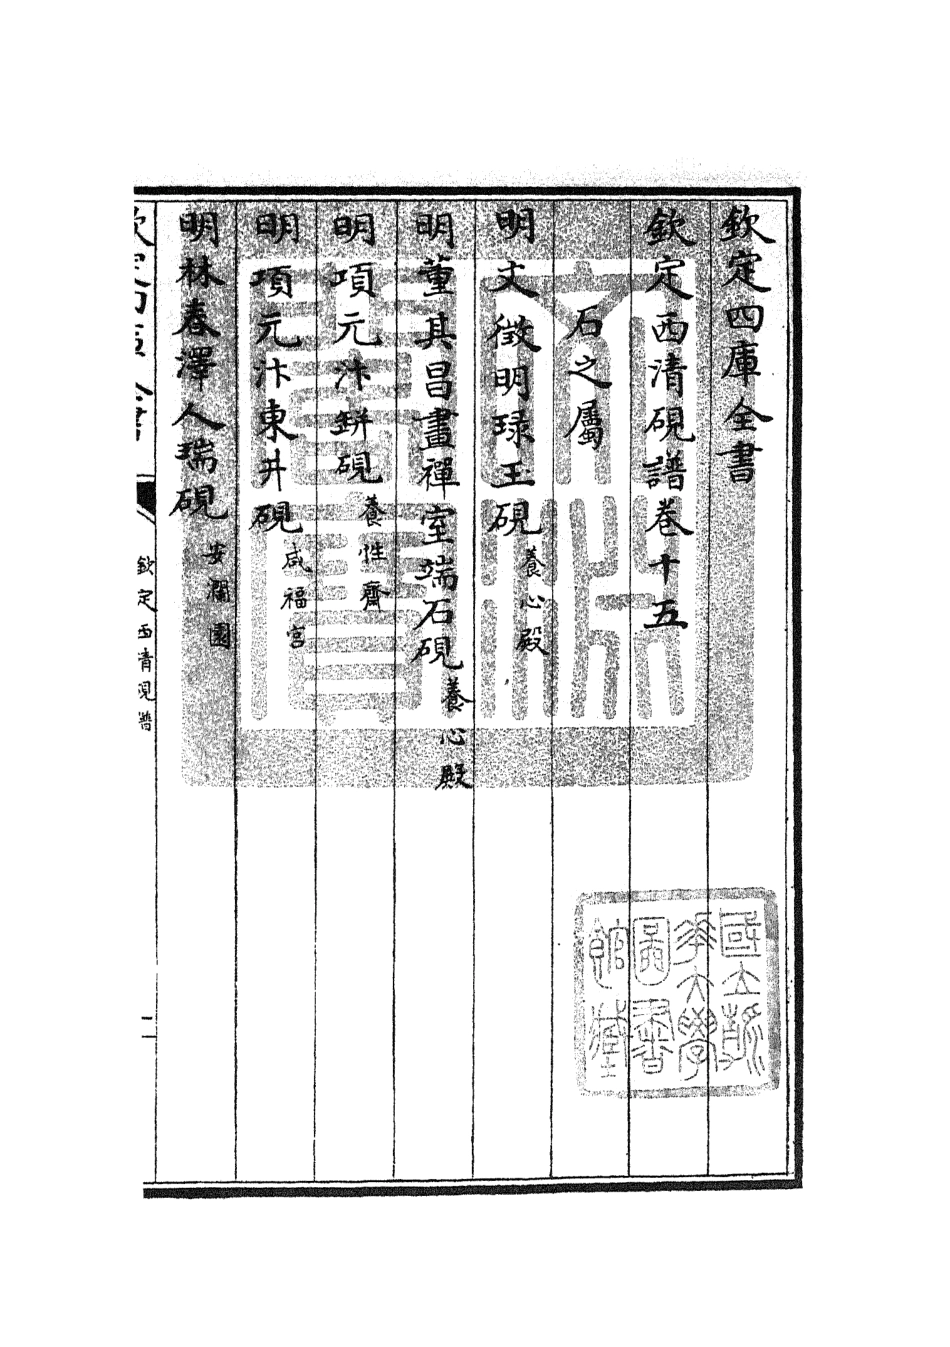 欽定四庫全書
欽定西清硯譜卷十五
石之屬
明文徵明球玉硯 養心殿
明董其昌畫禪室端石硯 養心殿
明項元汴缾硯 養性齋
明項元汴東井硯 咸福宮
明林春澤人瑞硯 安瀾園
欽定四庫全書
欽定西清硯譜
二
文淵閣寶
國立清華大學圖書館藏